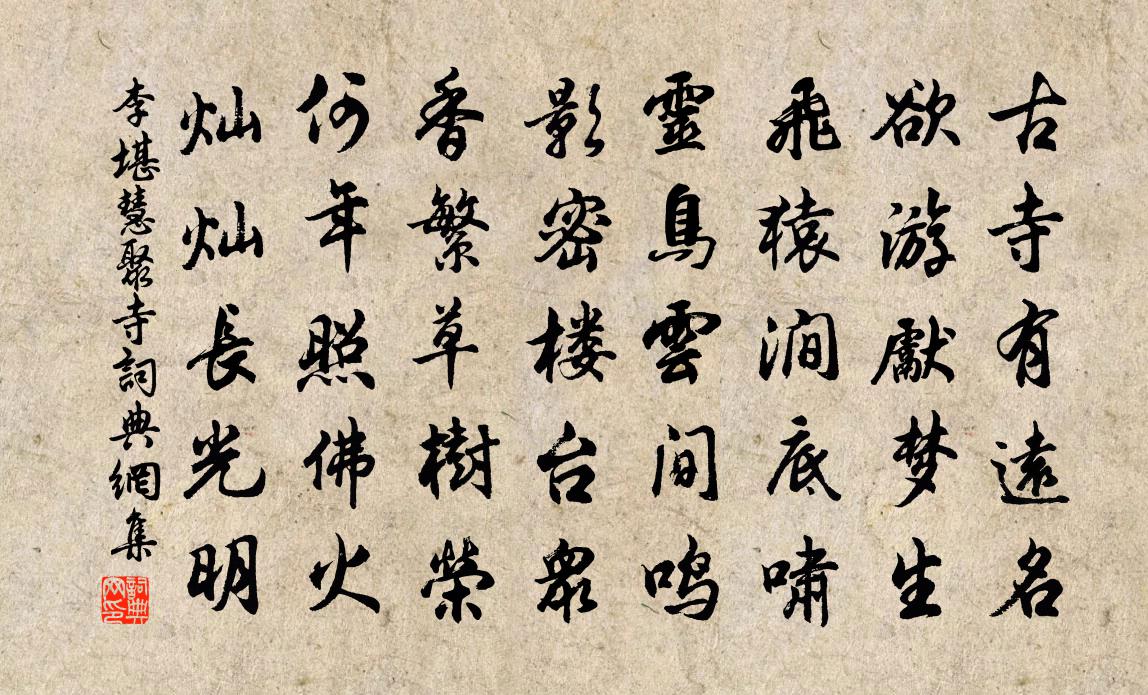 古寺有遠名
欲游獻梦生
飛猿澗底嘯
靈鳥雲间鸣
影密楼台眾
香繁草樹榮
何年照佛火
灿灿長光明
李堪慧聚寺詞典網集
詞典网印